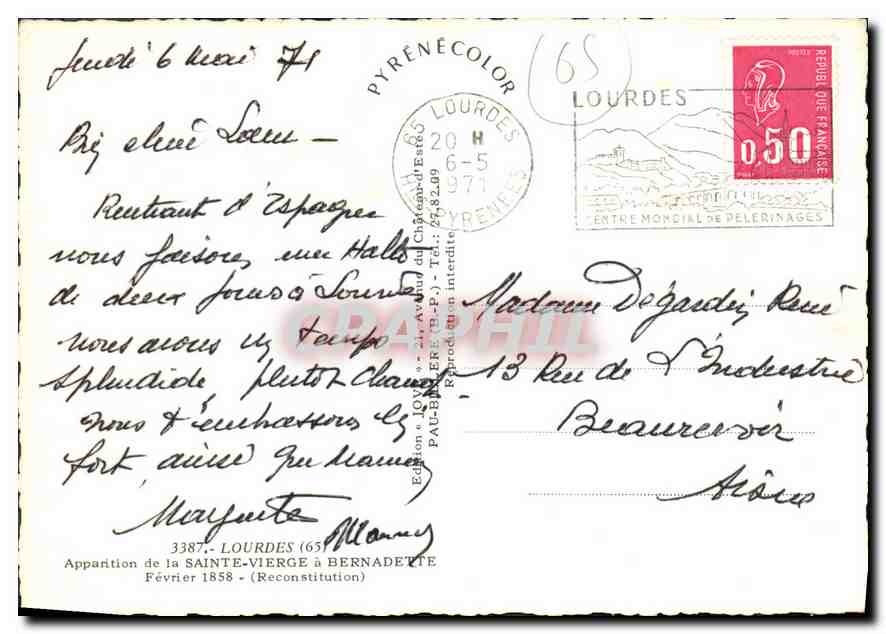 Jeudi 6 Mai 71
Bien chère Sœur -
Rentrant d'Espagne
nous faisons une Halte
de deux Jours à Lourdes
nous avons un temps
splendide, plutot chaud
nous t'embrassons bien
fort, ainsi que Maman
Marguerite
3387. - LOURDES (65)
Apparition de la SAINTE-VIERGE à BERNADETTE
Février 1858 - (Reconstitution)
PYRÉNÉCOLOR
Edition « JOVE » - 21, Avenue du Château-d'Este
PAU-BILLÈRE (B.-P.) - Tél.: 27.82.09
Reproduction interdite
65 LOURDES
20 H
6-5
1971
HTES PYRENEES
(65)
LOURDES
CENTRE MONDIAL DE PELERINAGES
POSTES
REPUBLIQUE FRANÇAISE
0,50
Madame Dégardin René
13 Rue de L'Industrie
Beaurevoir
Aisne
CPAPHIL